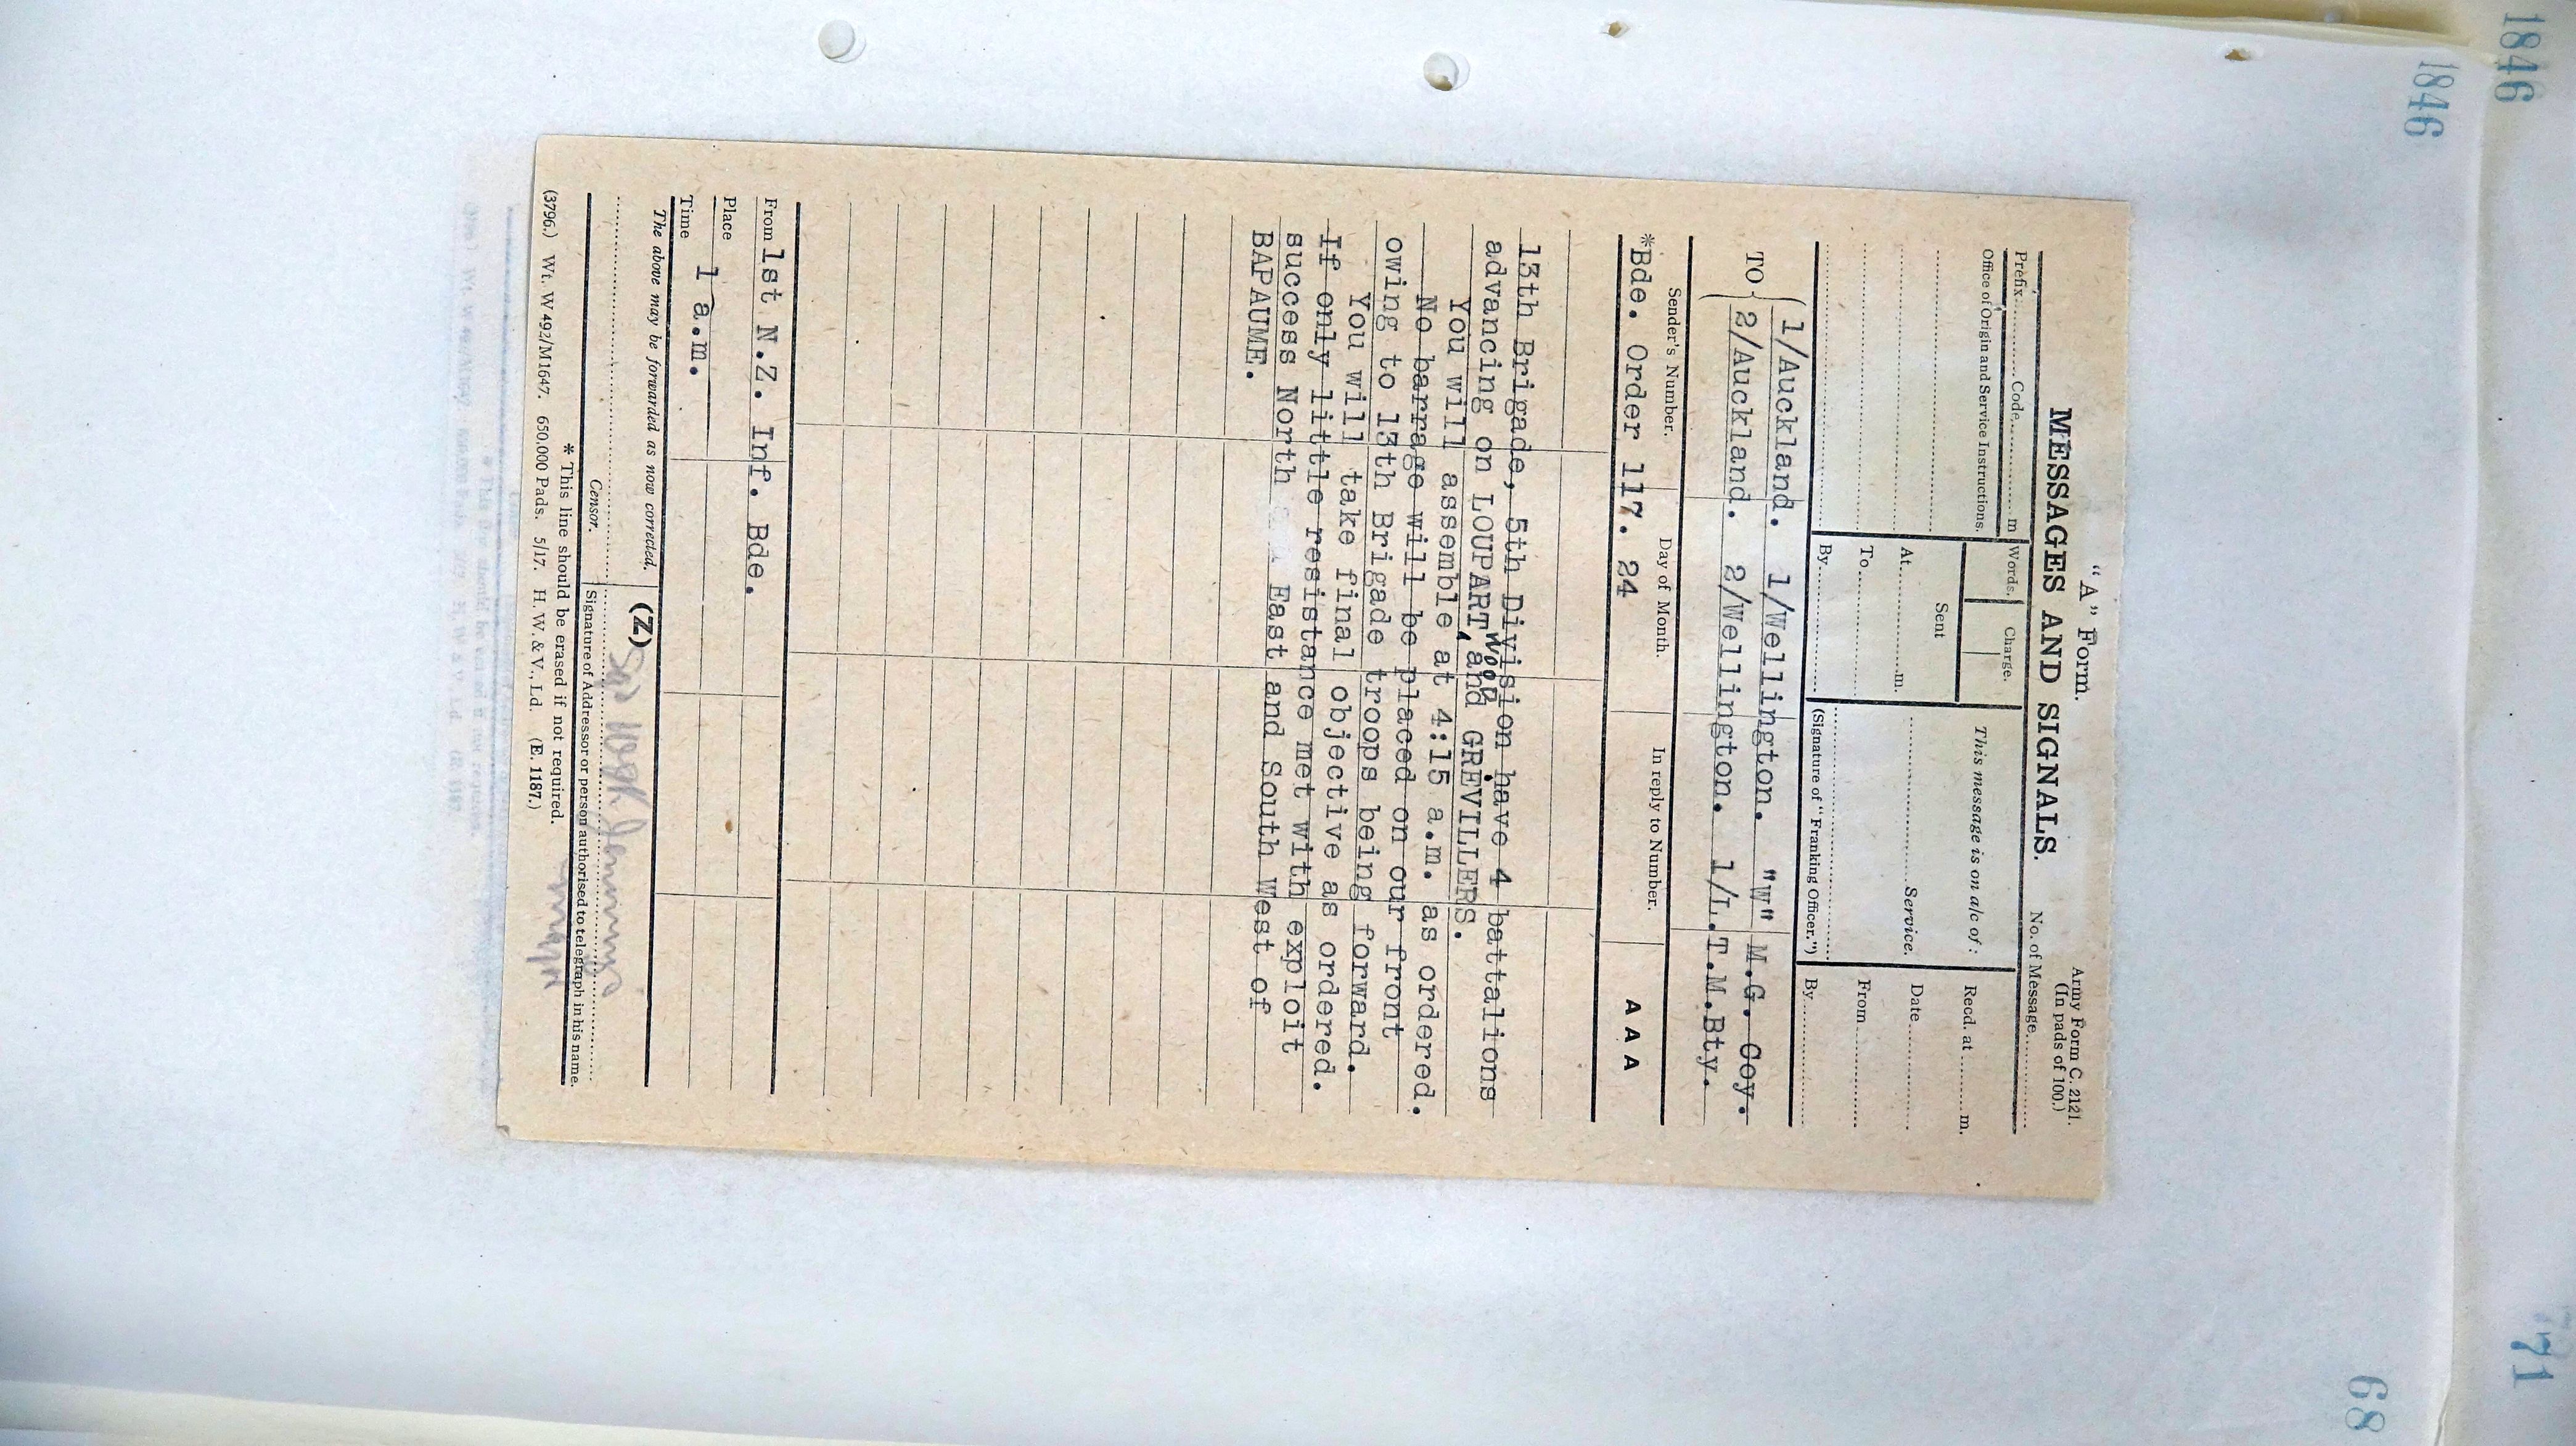 1846
1846
"A" Form.
Army Form C. 2121.
(In pads of 100.)
MESSAGES AND SIGNALS.
No. of Message............
Prefix........ Code........ m
Words.
Charge.
This message is on a/c of:
Recd. at ........ m.
Office of Origin and Service Instructions.
Sent
At............m.
............Service.
Date............
To............
From............
By............
(Signature of "Franking Officer.")
By............
TO
1/Auckland. 1/Wellington. "W" M.G. Coy.
2/Auckland. 2/Wellington. 1/L.T.M.Bty.
Sender's Number.
Day of Month.
In reply to Number.
*Bde. Order 117. 24
A A A
13th Brigade, 5th Division have 4 battalions
advancing on LOUPART WOOD and GREVILLERS.
You will assemble at 4:15 a.m. as ordered.
No barrage will be placed on our front
owing to 13th Brigade troops being forward.
You will take final objective as ordered.
If only little resistance met with exploit
success North East and South West of
BAPAUME.
From 1st N.Z. Inf. Bde.
Place
Time 1 a.m.
The above may be forwarded as now corrected.
(Z)
Censor.
Signature of Addressor or person authorised to telegraph in his name.
* This line should be erased if not required.
(3796.) Wt. W 492/M1647. 650,000 Pads. 5/17. H. W. & V., Ld. (E. 1187.)
68
71